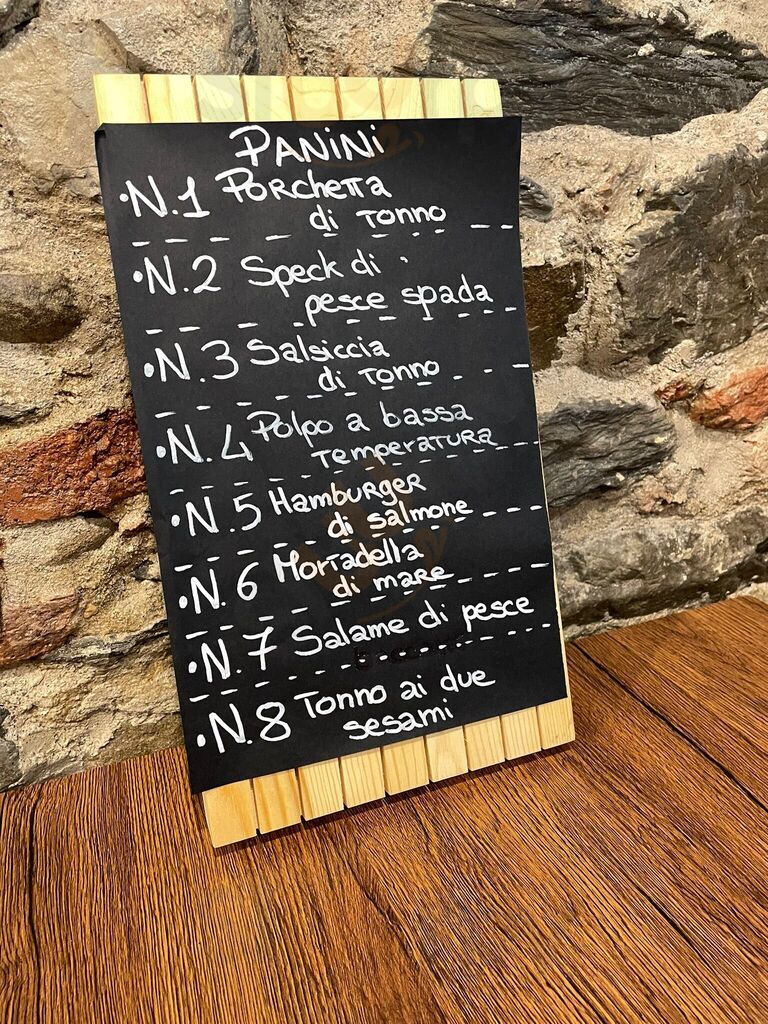 PANINI
·N.1 PORCHETTA
di TONNO
·N.2 Speck di
pesce spada
·N.3 Salsiccia
di TONNO
·N.4 Polpo a bassa
TEMPERATURA
·N.5 HAMBURGER
di salmone
·N.6 MORTADELLA
di mare
·N.7 Salame di pesce
·N.8 TONNO ai due
sesami